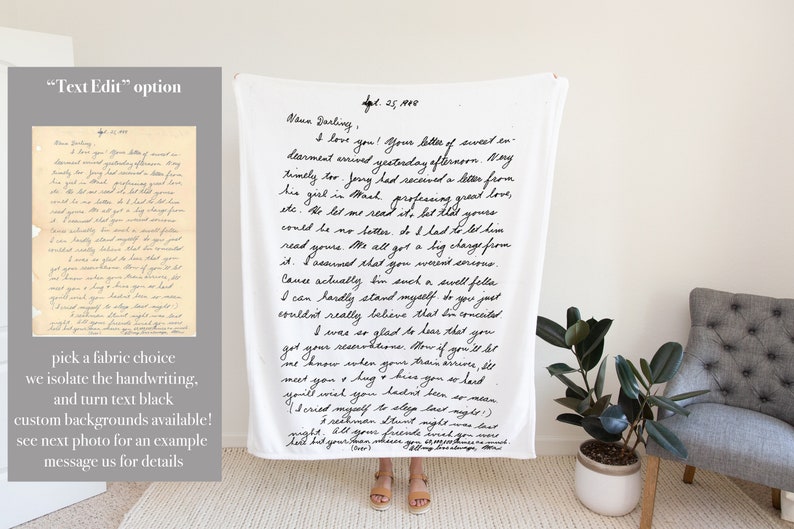 “Text Edit” option
Sept. 25, 1948
Darling,
I love you! Your letter of sweet en-
dearment arrived yesterday afternoon. Very
timely too. Jerry had received a letter from
his girl in Wash. professing great love,
etc. He let me read it & bet that yours
could be no better. So I had to let him
read yours. We all got a big charge from
it. I assumed that you weren't serious.
Cause actually I'm such a swell fella
I can hardly stand myself. So you just
couldn't really believe that I'm conceited.
I was so glad to hear that you
got your reservations. Now if you'll let
me know when your train arrives, I'll
meet you & hug & kiss you so hard
you'll wish you hadn't been so mean.
(I cried myself to sleep last night!)
Freshman Stunt night was last
night. All your friends wish you were
here but your man misses you 60,000,000 times as much.
(Over) All my love always,
pick a fabric choice
we isolate the handwriting,
and turn text black
custom backgrounds available!
see next photo for an example
message us for details